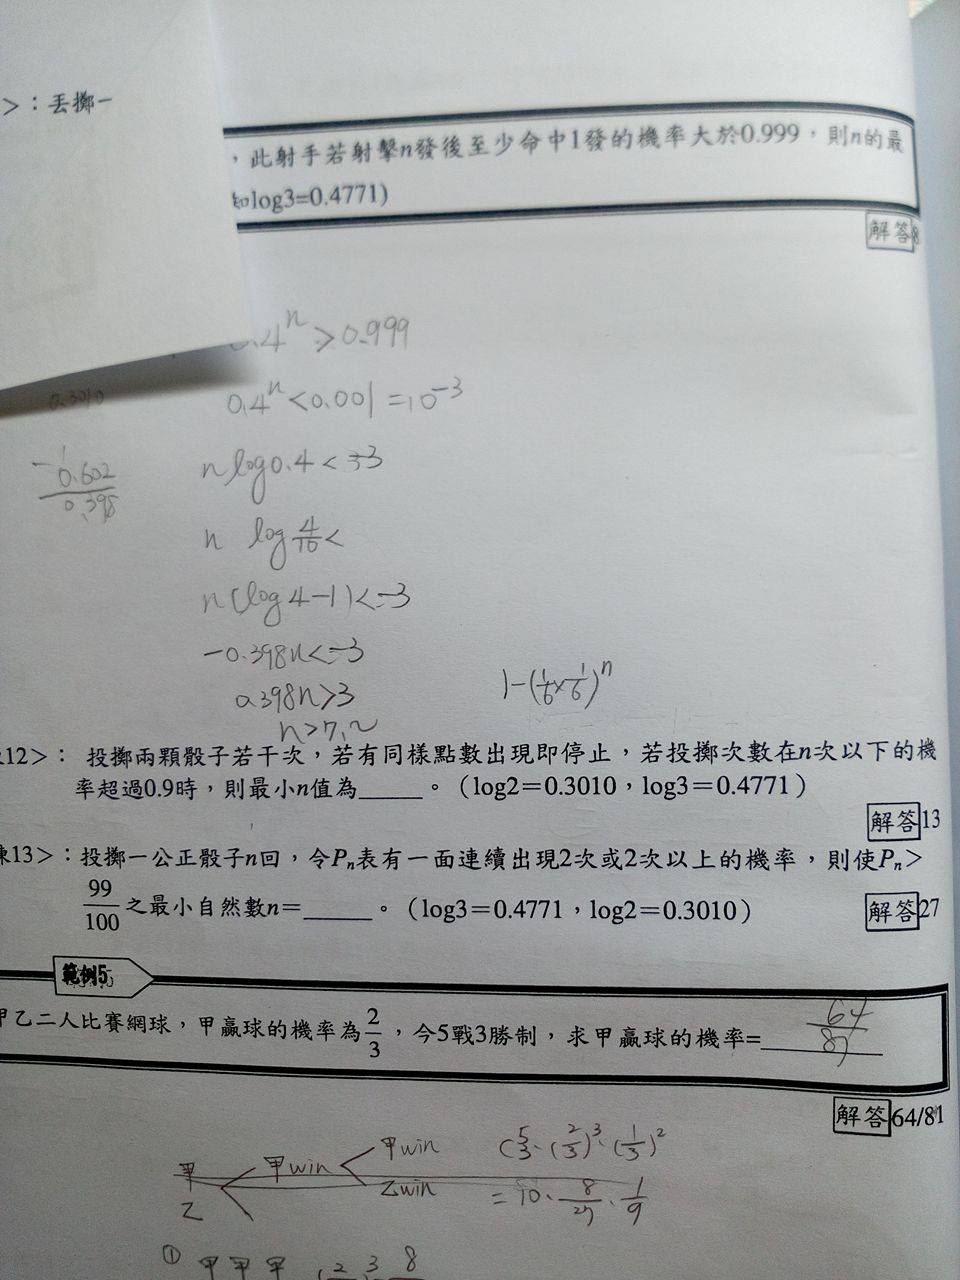 >：丟擲一
，此射手若射擊n發後至少命中1發的機率大於0.999，則n的最
知log3=0.4771)
解答8
.4ⁿ>0.999
0.4ⁿ<0.001=10⁻³
0.3010
-0.602
0.398
n log0.4<-3
n log 4/10 <
n(log4-1)<-3
-0.398n<-3
0.398n>3
n>7.~
1-(1/6×1/6)ⁿ
12>： 投擲兩顆骰子若干次，若有同樣點數出現即停止，若投擲次數在n次以下的機
率超過0.9時，則最小n值為_____。（log2＝0.3010，log3＝0.4771）
解答13
練13>：投擲一公正骰子n回，令Pₙ表有一面連續出現2次或2次以上的機率，則使Pₙ>
99/100 之最小自然數n＝_____。（log3＝0.4771，log2＝0.3010）
解答27
範例5
甲乙二人比賽網球，甲贏球的機率為2/3，今5戰3勝制，求甲贏球的機率=64/81
解答64/81
甲 甲win 甲win
乙 乙win
C⁵₃·(2/3)³·(1/3)²
=10·8/27·1/9
① 甲甲甲 (2/3)³ 8